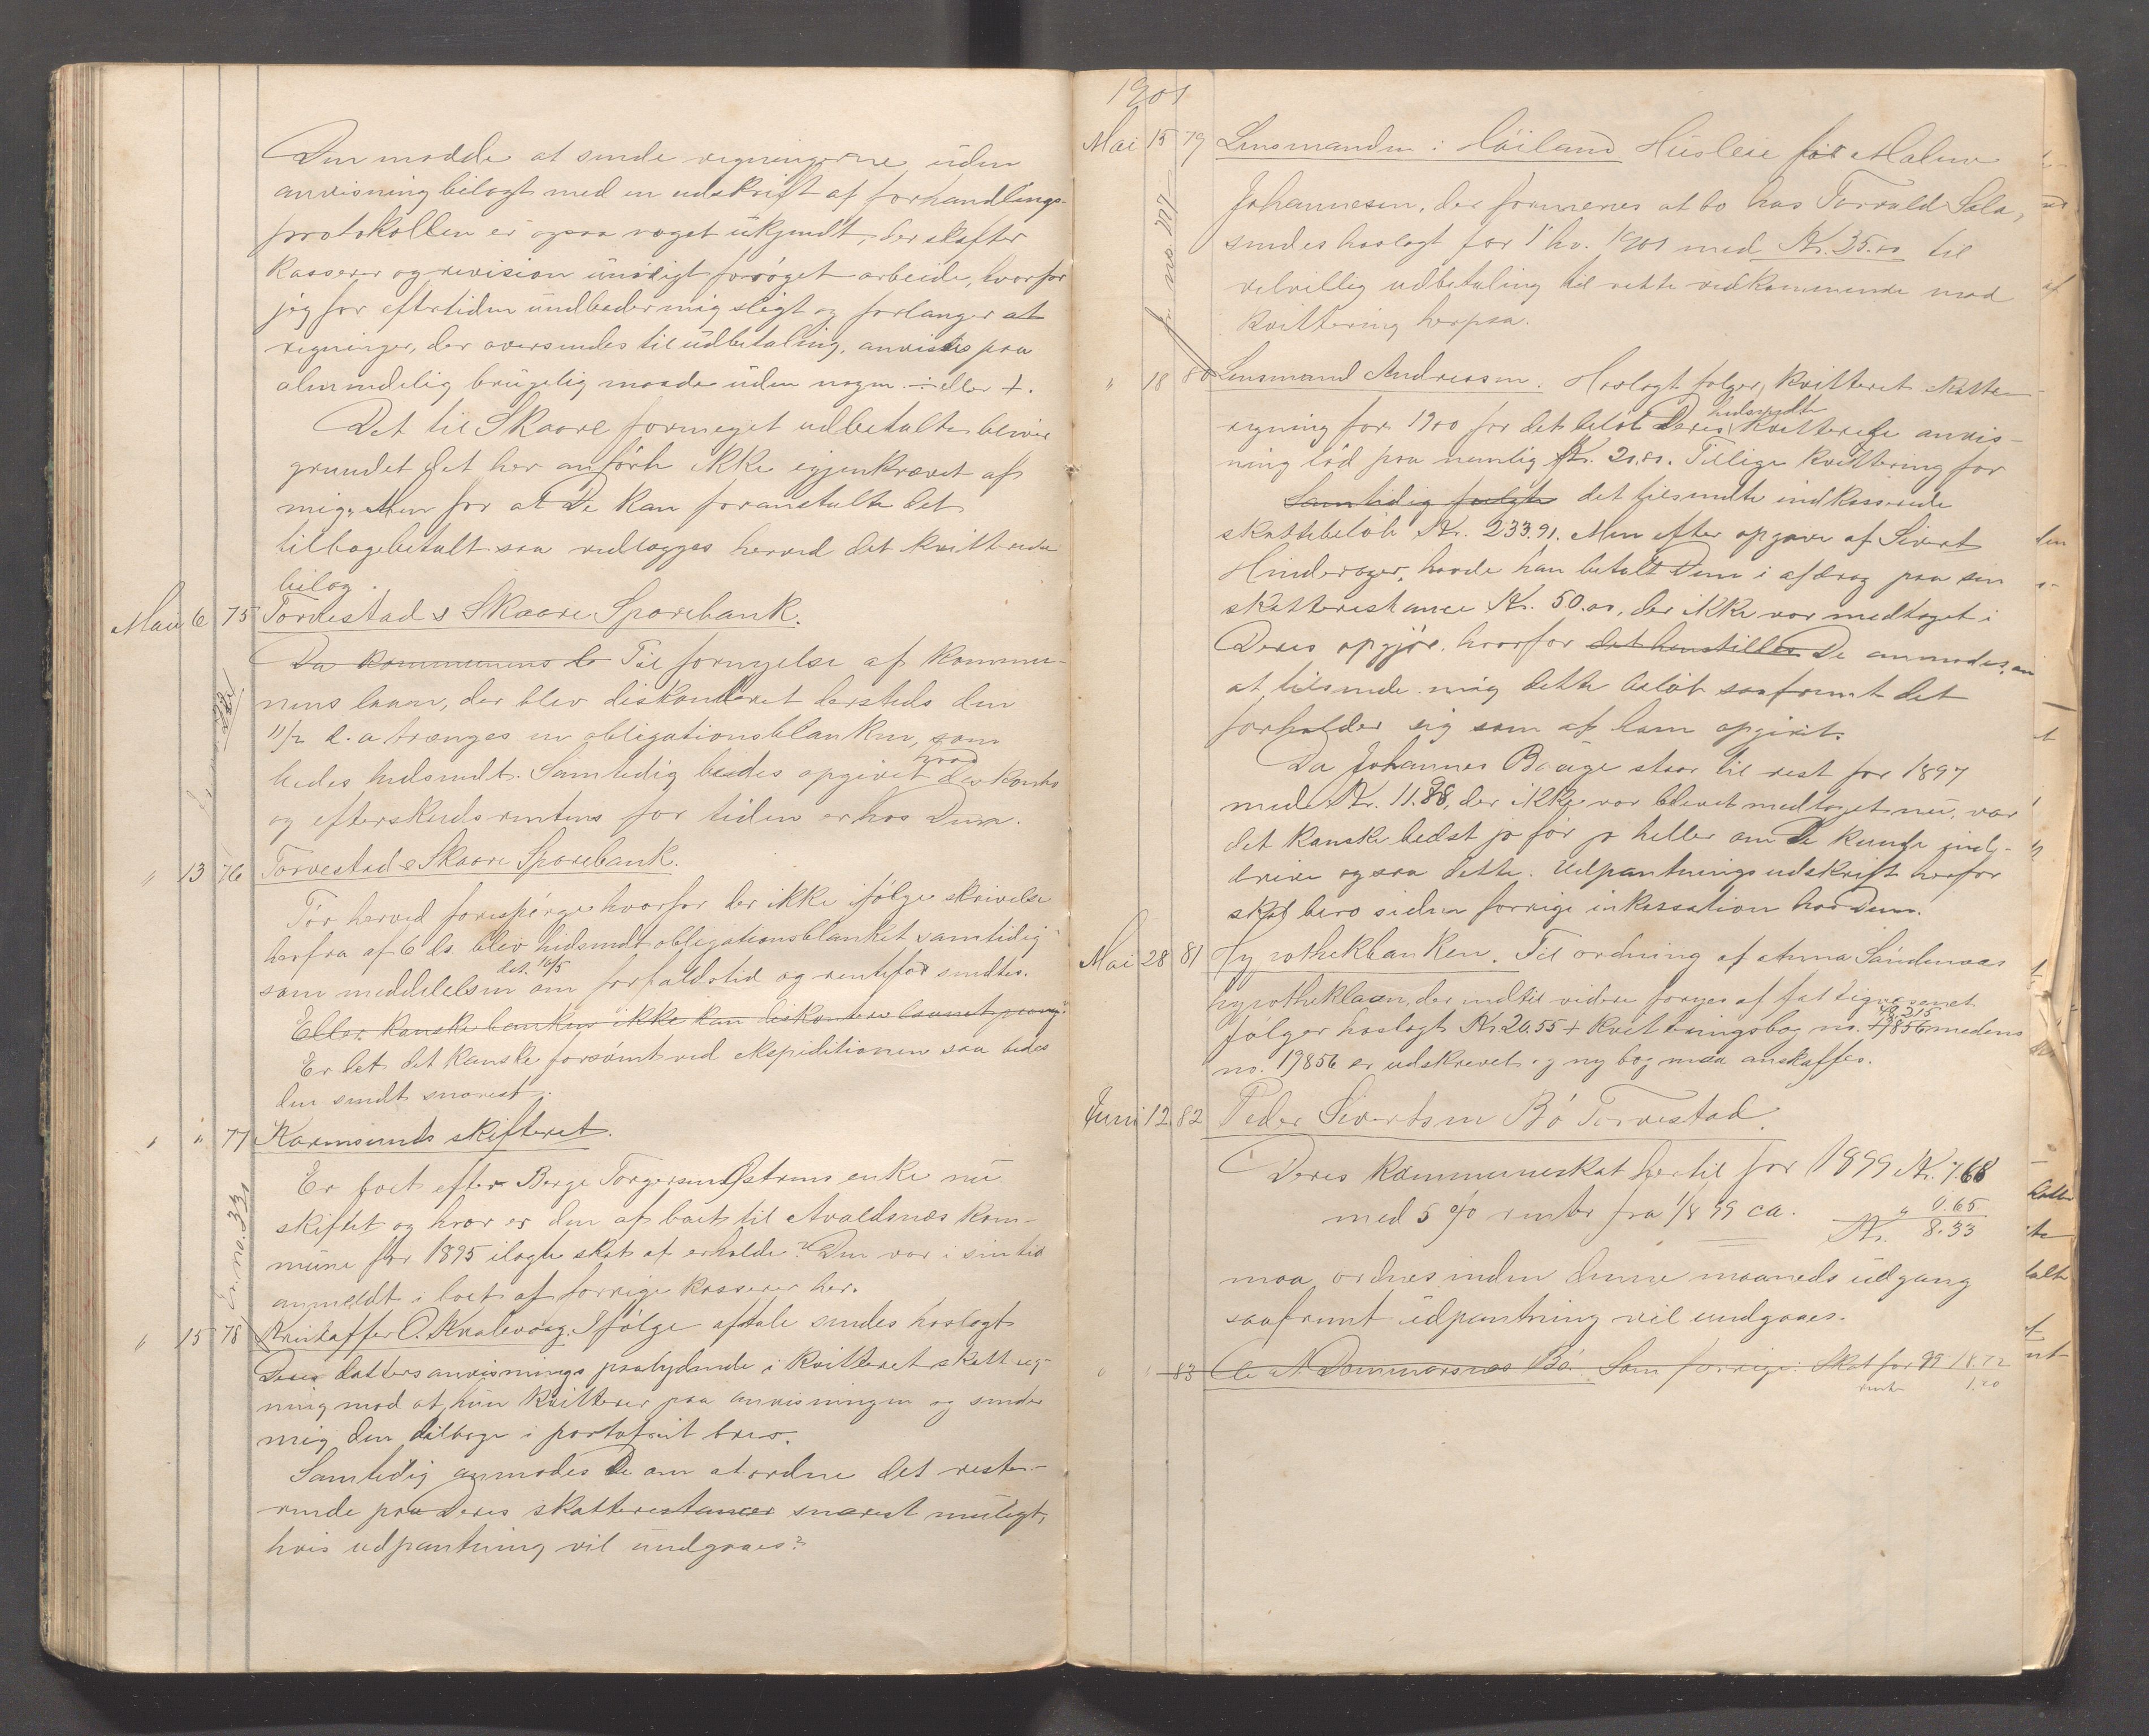 Den maade at sende regningerne uden
anvisning bilagt med en udskrift af forhandlings-
protokollen er ogsaa noget ukjendt, der skaffer
kasserer og revision unødigt forøget arbeide, hvorfor
jeg for eftertiden undbeder mig sligt og forlanger at
regninger, der oversendes til udbetaling, anvises paa
almindelig brugelig maade uden nogen ÷ eller +.
Det til Skaare formeget udbetalte bliver
grundet det her anførte ikke igjenkrævet af
mig. Men for at De kan foranstalte det
tilbagebetalt saa vedlægges herved det kvitterede
bilag.
Mai 6 75 Torvestad & Skaare Sparebank.
Da kommunens la Til fornyelse af kommu-
nens laan, der blev diskonteret dersteds den
11/2 d.a trænges en obligationsblanken, som
bedes hidsendt. Samtidig bedes opgivet hvad diskonto
og efterskudsrentens for tiden er hos Dem.
" 13 76 Torvestad & Skaare Sparebank.
Tør herved forespørge hvorfor der ikke ifølge skrivelse
herfra af 6 ds. blev hidsendt obligationsblanket samtidig
som meddelelsen det. 10/5 om forfaldstid og rentefod sendtes.
Eller kanske banken ikke kan diskontere laanet paany?
Er det det kanske forsømt ved ekspeditionen saa bedes
den sendt snarest.
" " 77 Karmsunds skifteret.
Er no. 330
Er boet efter Berge Torgersen Østrems enke nu
skiftet og hvor er den af boet til Avaldsnes kom-
mune for 1895 ilagte skat at erholde? Den var i sin tid
anmeldt i boet af forrige kasserer her.
" 15 78 Kristoffer O. Kvalevaag. Ifølge aftale sendes hoslagt
Deres datters anvisnings paalydende i kvitteret skattereg-
ning mod at hun kvitterer paa anvisningen og sender
mig den tilbage i portofrit brev.
Samtidig anmodes De om at ordne det reste-
rende paa Deres skatterestancer snarest muligt,
hvis udpantning vil undgaaes?
1901
Mai 15 79 Lensmanden i Høiland Husleie for Malene
Johannesen, der formenes at bo hos Torvald Sola,
sendes hoslagt for 1 hv. 1901 med Kr. 35.00 til
velvillig udbetaling til rette vedkommende mod
kvittering herpaa.
" 18 80 Lensmand Andreasen. Hoslagt følger kvitteret skatte-
regning for 1900 for det beløb Deres hidsendte kvitterede anvis-
ning lød paa nemlig Kr. 20.80. Tillige kvittering for
Samtidig fulgte det tilsendte indkasserede
skattebeløb Kr. 233.91. Men efter opgave af Sivert
Hinderager, havde han betalt Dem i afdrag paa sin
skatterestance Kr. 50.00, der ikke var medtaget i
Deres opgjør. hvorfor det henstilles De anmodes om
at tilsende mig dette beløb saafremt det
forholder sig som af ham opgivet.
Da Johannes Baage staar til rest for 1897
med Kr. 11.88, der ikke var blevet medtaget nu, var
det kanske bedst jo før jo heller om De kunde ind-
drive ogsaa dette. Udpantningsudskrift herfor
skal bero siden forrige inkassation hos Dem.
Mai 28 81 Hypothekbanken. Til ordning af Anna Sandenaas
hypotheklaan, der indtil videre forges af fattigvæsenet
følger hoslagt Kr. 20.55 + kvitteringsbog no. 48315 19856 medens
no. 19856 er udskrevet og ny bog maa anskaffes.
Juni 12 82 Peder Sivertsen Bø Torvestad.
Deres kommuneskat hertil for 1899 Kr. 7.68
med 5 % renter fra 1/8 99 ca. " 0.65
Kr. 8.33
maa ordnes inden denne maaneds udgang
saafremt udpantning vil undgaaes.
" " 83 Bø. Som forrige: Skat for 99 18.72
rente 1.20